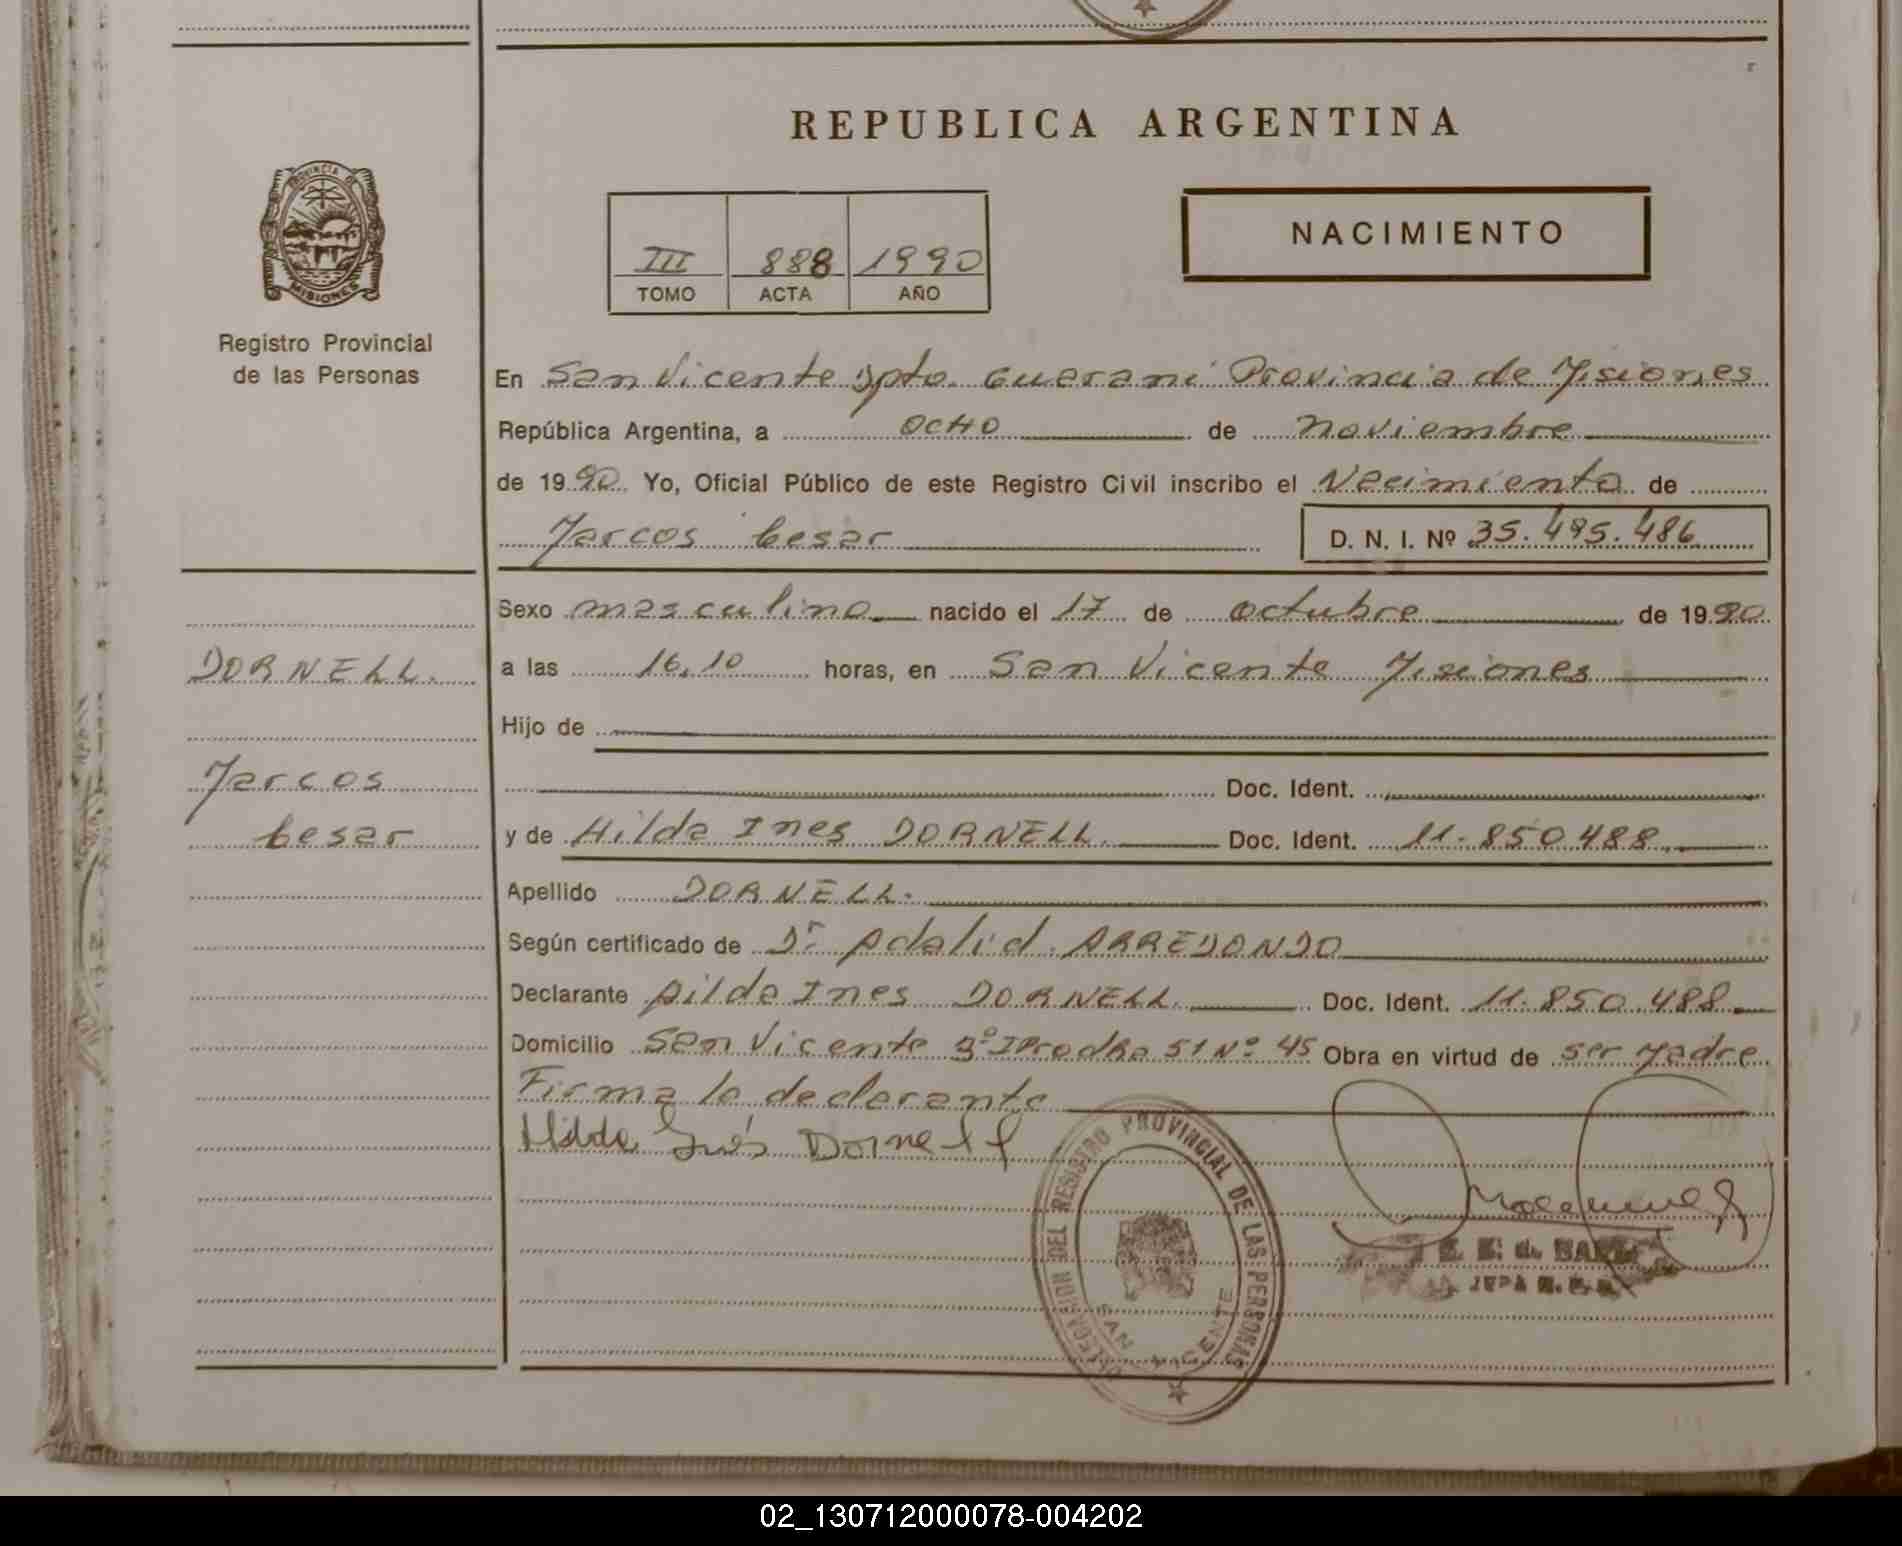 REPUBLICA ARGENTINA
PROVINCIA DE
MISIONES
Registro Provincial
de las Personas
III 888 1990
TOMO ACTA AÑO
NACIMIENTO
En San Vicente Dpto. Guarani Provincia de Misiones
República Argentina, a ocho de noviembre
de 1990 Yo, Oficial Público de este Registro Civil inscribo el Nacimiento de
Marcos Cesar D. N. I. Nº 35.495.486
Sexo masculino nacido el 17 de octubre de 1990
DORNELL.
a las 16,10 horas, en San Vicente Misiones
Hijo de
Marcos
Cesar
Doc. Ident.
y de Hilda Ines DORNELL. Doc. Ident. 11.850.488
Apellido DORNELL.
Según certificado de Dr. Adalid ARREDONDO
Declarante Hilda Ines DORNELL. Doc. Ident. 11.850.488
Domicilio San Vicente Bº 51 Nº 45 Obra en virtud de ser Madre
Firma la declarante
Hilda Inés Dornell
DELEGACION DEL REGISTRO PROVINCIAL DE LAS PERSONAS
SAN VICENTE
02_130712000078-004202